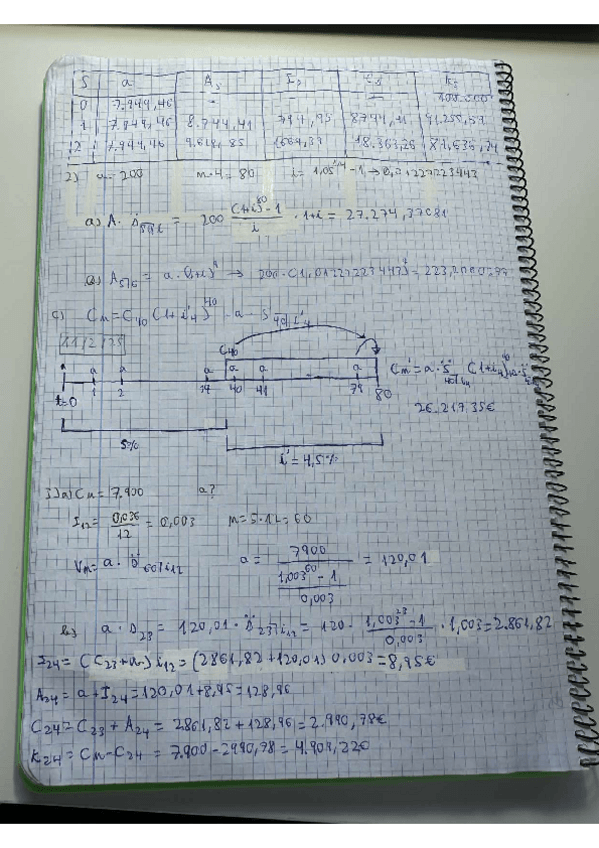 S a As Is Cs Ks
0 7.949,46 - - - 100.000
1 7.949,46 8.744,41 794,95 8744,41 91.255,59
12 7.949,46 9.618,85 1669,39 18.363,26 81.636,74
2) a = 200 m·4 = 80 i = 1,05^1/4 - 1 → 0,01227223443
a) A· s̈80|i = 200 (1+i)^80 - 1 / i · 1+i = 27.274,37081
= a·(1+i) → 200·(1,01227223443)
c) Cm = C40 (1+i'4)^40 a s 40|i'4
C40
a a a a a a a
t=0 1 2 39 40 41 79 80
Cm = a · s̈ 40|i4 (1+i4)^40
26.219,35€
5% i' = 4,5%
3) a) Cn = 7.900 a?
I12 = 0,036 / 12 = 0,003 m = 5·12 = 60
Vm = a · s̈ 60|i12 a = 7900 / (1,003^60 - 1 / 0,003) = 120,01
b) a · s̈23 = 120,01 · s̈23|i12 = 120 · 1,003^23 - 1 / 0,003 · 1,003 = 2.861,82
I24 = (C23+a) i12 = (2861,82+120,01) 0,003 = 8,95€
A24 = a + I24 = 120,01+8,95 = 128,96
C24 = C23 + A24 = 2861,82 + 128,96 = 2.990,78€
K24 = Cm-C24 = 7.900 - 2990,78 = 4.909,220